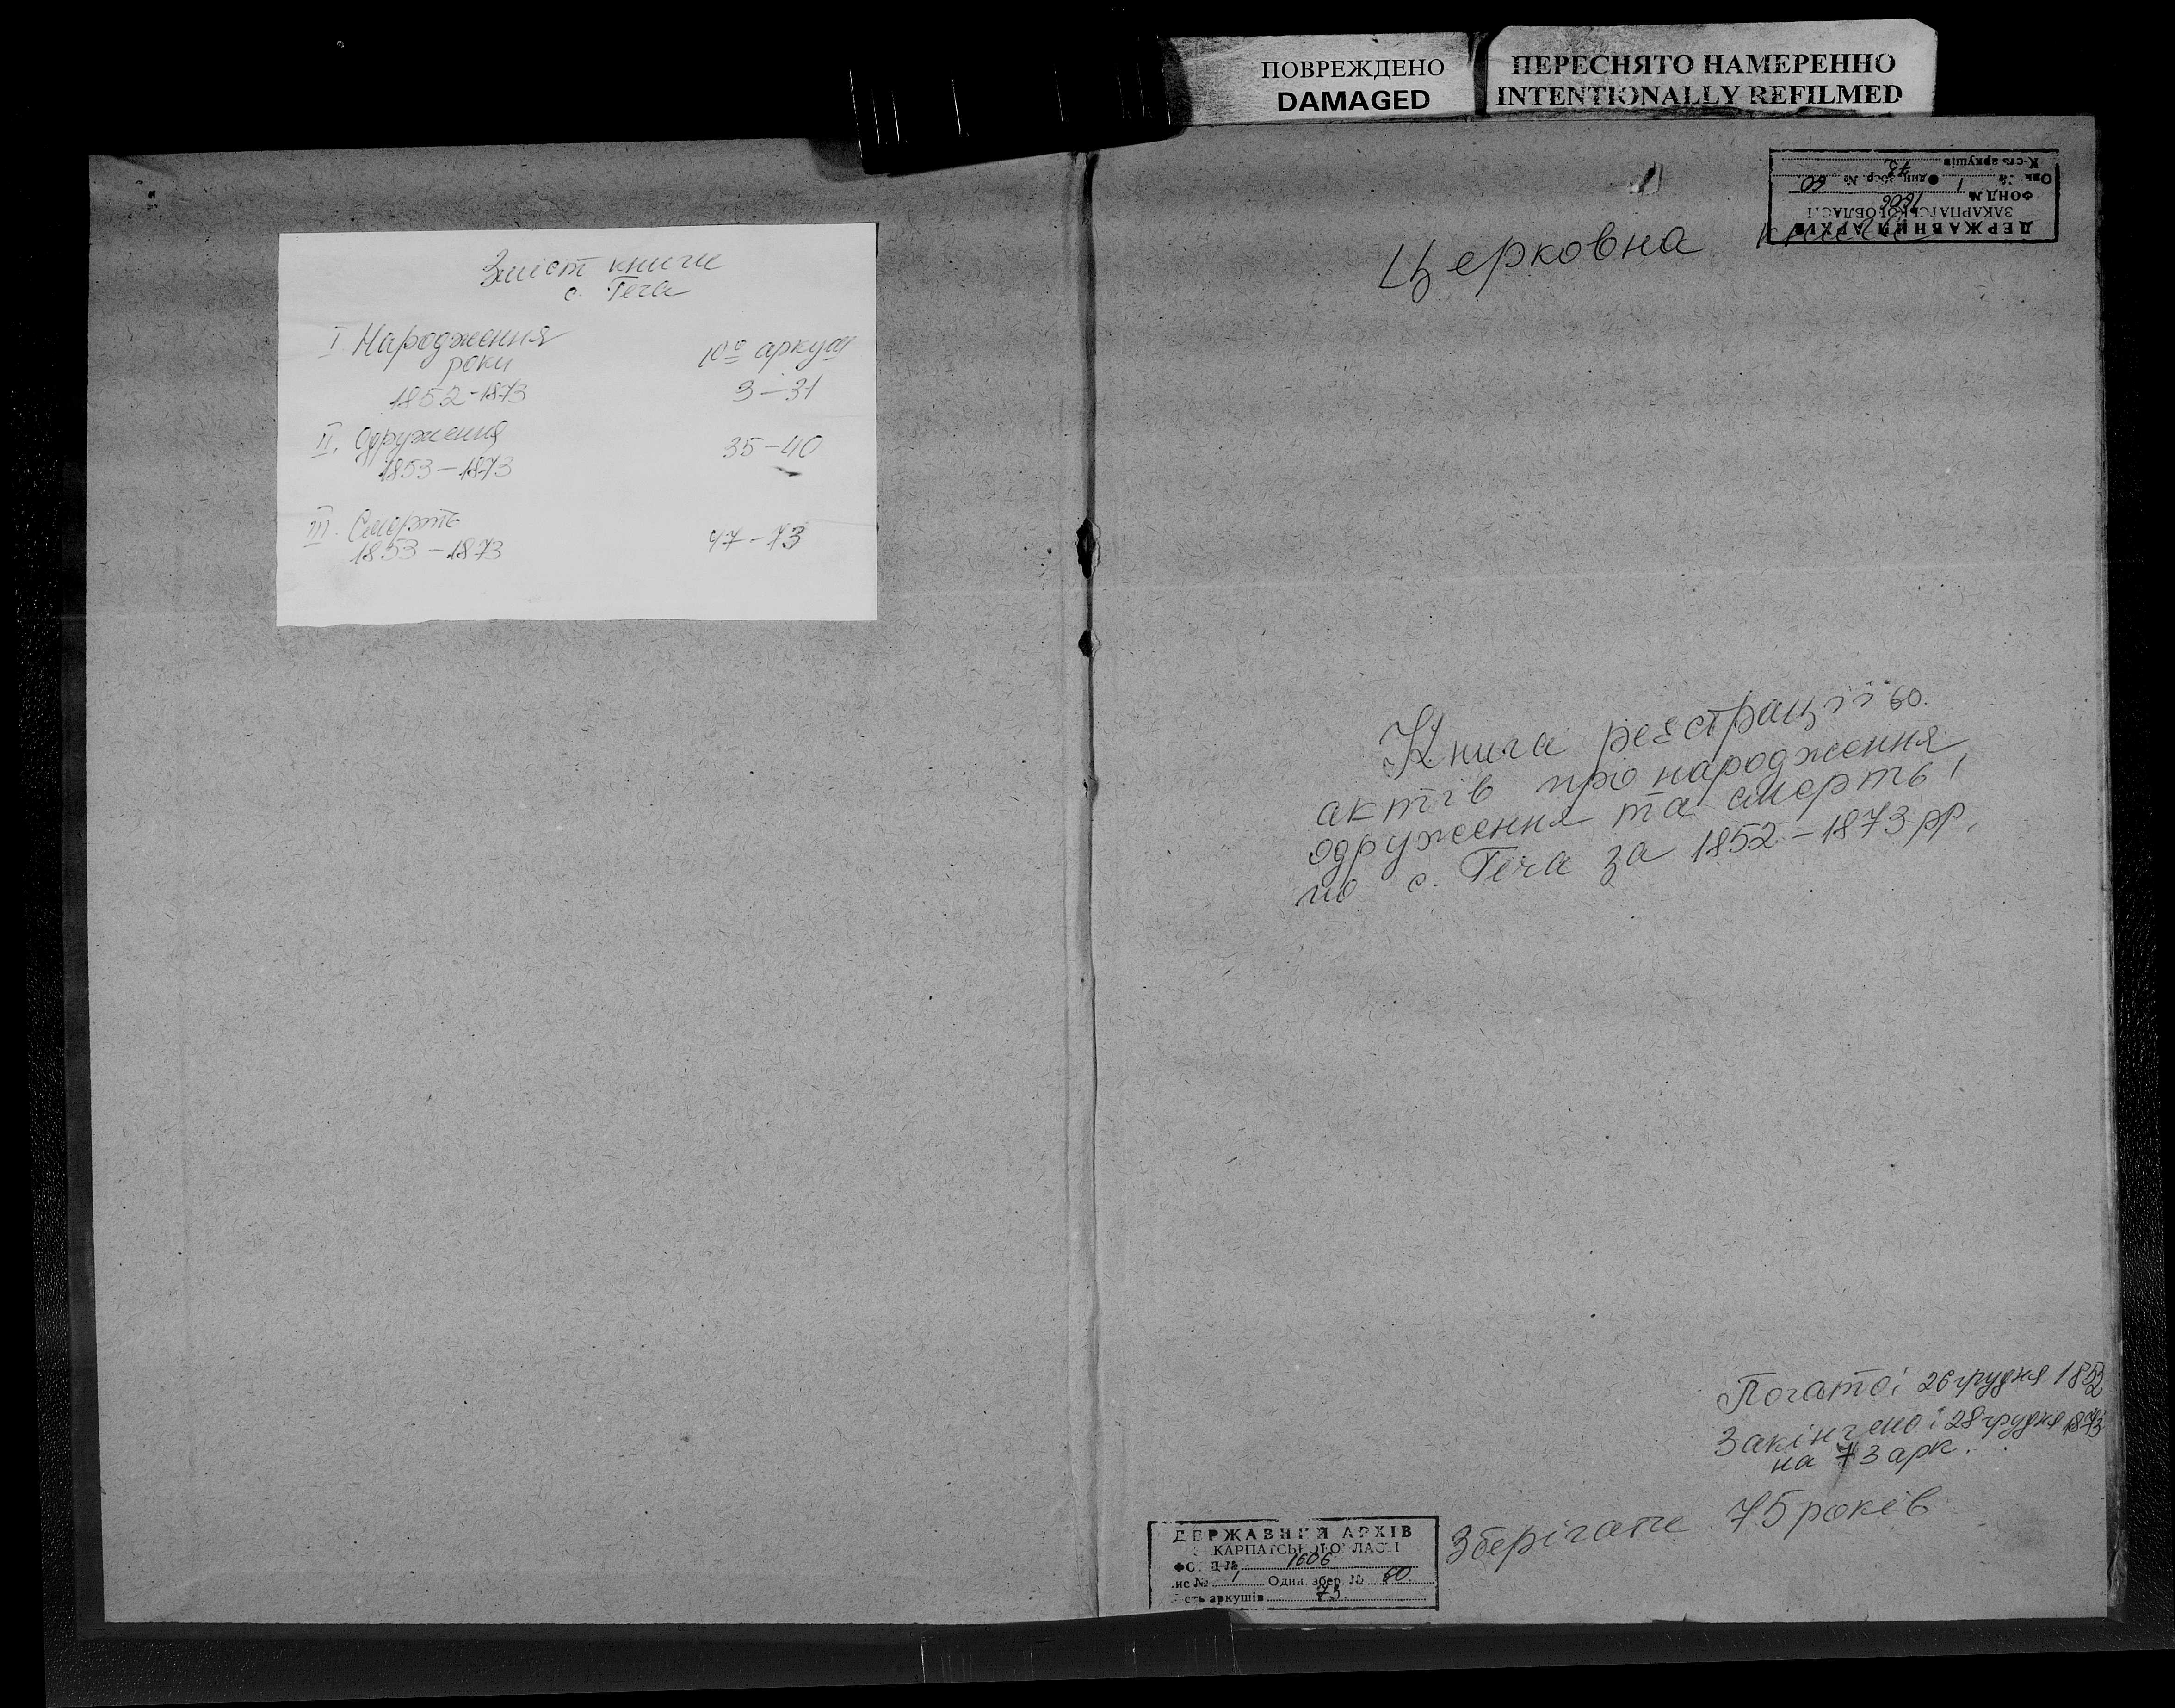 ПОВРЕЖДЕНО
DAMAGED
ПЕРЕСНЯТО НАМЕРЕННО
INTENTIONALLY REFILMED
Зміст книги
с. Геча
I. Народження
роки
1852-1873
аркуш
3-31
II. Одруження
1853-1873
35-40
III. Смерть
1853-1873
47-73
ДЕРЖАВНИЙ АРХІВ
ЗАКАРПАТСЬКОЇ ОБЛАСТІ
ФОНД № 1606
Опис № 1 Один. збер. № 60
К-сть аркушів 73
Церковна книга
Книга реєстрації 60.
актів про народження
одруження та смерть,
по с. Геча за 1852-1873 рр.
Почато: 26 грудня 1852
Закінчено: 28 грудня 1873
на 73 арк.
Зберігати 75 років
ДЕРЖАВНИЙ АРХІВ
ЗАКАРПАТСЬКОЇ ОБЛАСТІ
ФОНД № 1606
Опис № 1 Один. збер. № 60
К-сть аркушів 73.